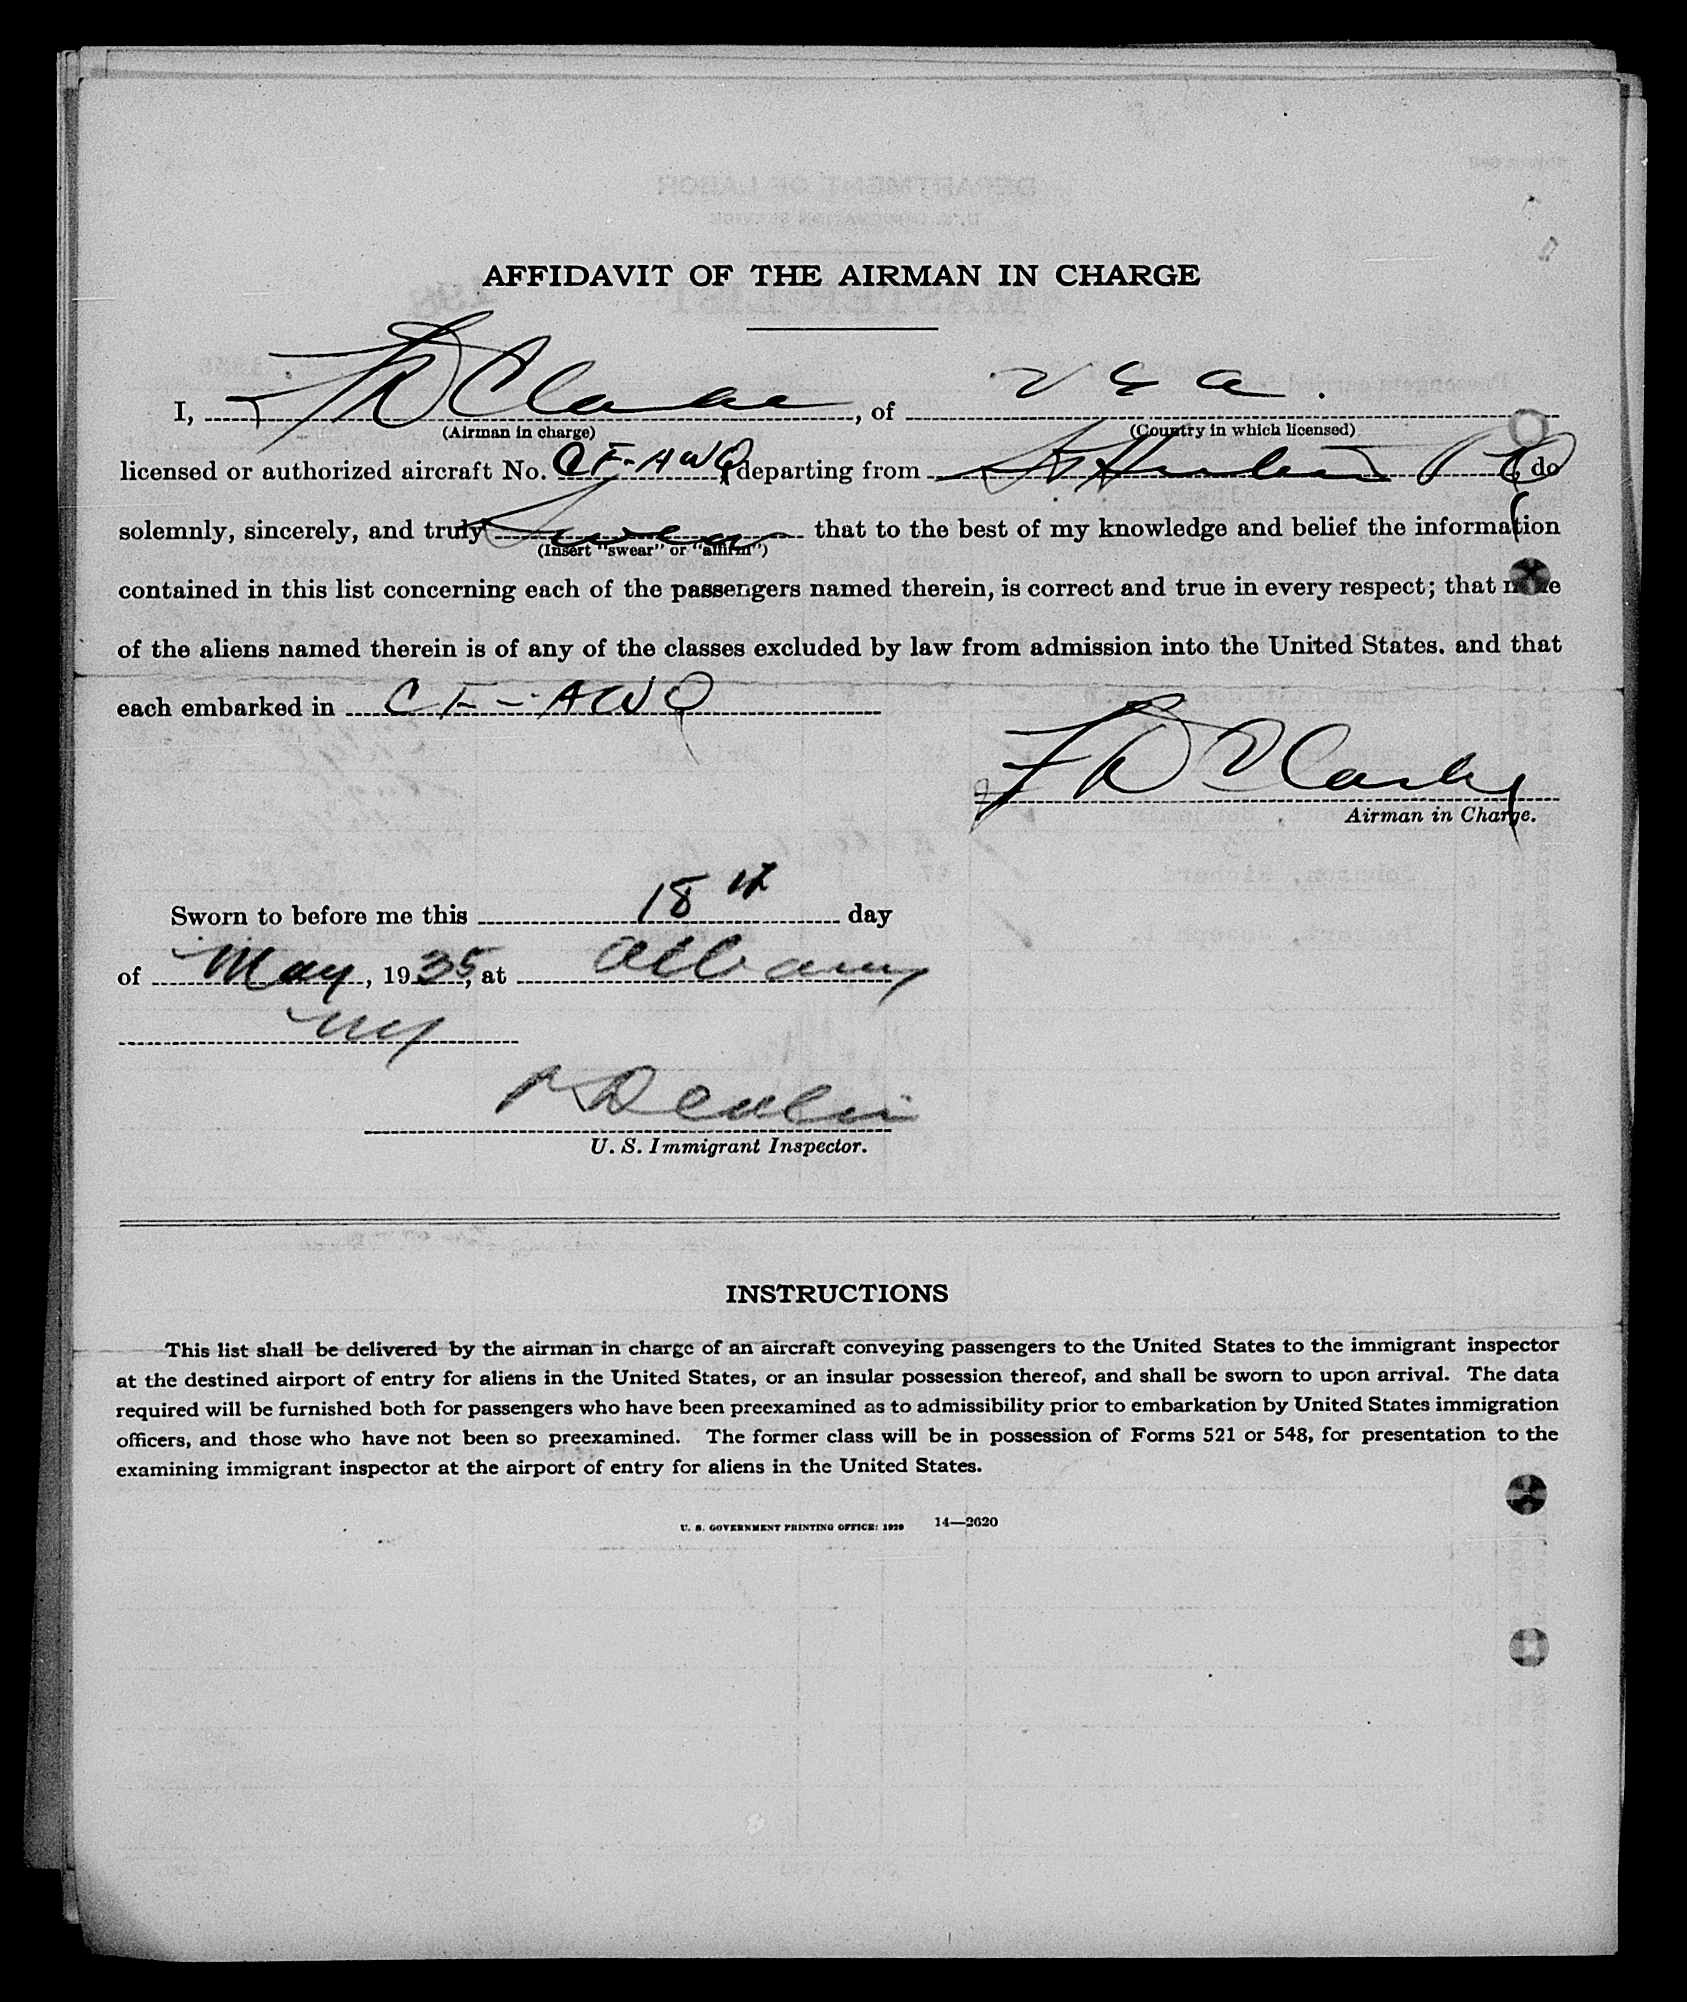 AFFIDAVIT OF THE AIRMAN IN CHARGE
I, F D Clarke, of U S A.
(Airman in charge) (Country in which licensed)
licensed or authorized aircraft No. CF-AWQ, departing from St Hubert P Q, do
solemnly, sincerely, and truly Swear that to the best of my knowledge and belief the information
(Insert "swear" or "affirm")
contained in this list concerning each of the passengers named therein, is correct and true in every respect; that none
of the aliens named therein is of any of the classes excluded by law from admission into the United States. and that
each embarked in CF-AWQ
F D Clarke
Airman in Charge.
Sworn to before me this 18th day
of May, 1935, at Albany
NY
Devlin
U. S. Immigrant Inspector.
INSTRUCTIONS
This list shall be delivered by the airman in charge of an aircraft conveying passengers to the United States to the immigrant inspector
at the destined airport of entry for aliens in the United States, or an insular possession thereof, and shall be sworn to upon arrival. The data
required will be furnished both for passengers who have been preexamined as to admissibility prior to embarkation by United States immigration
officers, and those who have not been so preexamined. The former class will be in possession of Forms 521 or 548, for presentation to the
examining immigrant inspector at the airport of entry for aliens in the United States.
U. S. GOVERNMENT PRINTING OFFICE: 1929 14—2620